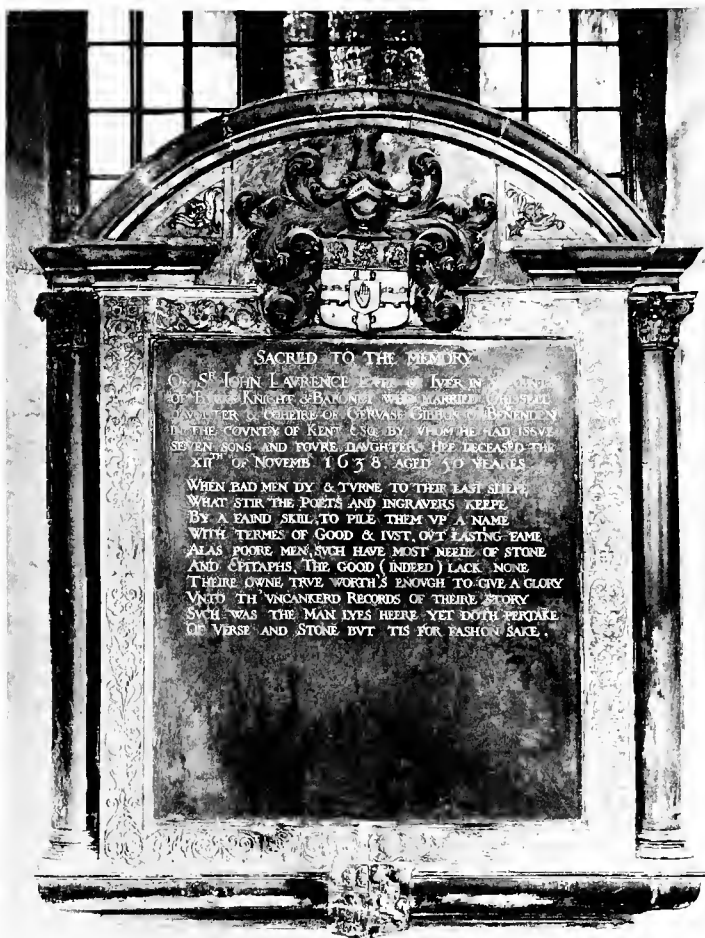 SACRED TO THE MEMORY
OF Sᴿ IOHN LAWRENCE IVER IN
OF KNIGHT & BARONET WHO MARRIED GRISSELL
DAVGHTER & COHEIRE OF GERVASE GIBBON OF BENENDEN
IN THE COVNTY OF KENT ESQ BY WHOM HE HAD ISSVE
SEVEN SONS AND FOVRE DAVGHTERS HEE DECEASED THE
XIITH OF NOVEMB 1638 AGED 50 YEARES
WHEN BAD MEN DY & TVRNE TO THEIR LAST SLEEPE
WHAT STIR THE POETS AND INGRAVERS KEEPE
BY A FAIND SKILL TO PILE THEM VP A NAME
WITH TERMES OF GOOD & IVST, OVT LASTING FAME
ALAS POORE MEN, SVCH HAVE MOST NEEDE OF STONE
AND EPITAPHS, THE GOOD (INDEED) LACK NONE
THEIRE OWNE TRVE WORTH'S ENOVGH TO GIVE A GLORY
VNTO TH'VNCANKERD RECORDS OF THEIRE STORY
SVCH WAS THE MAN LYES HEERE YET DOTH PERTAKE
OF VERSE AND STONE BVT TIS FOR FASHON SAKE.